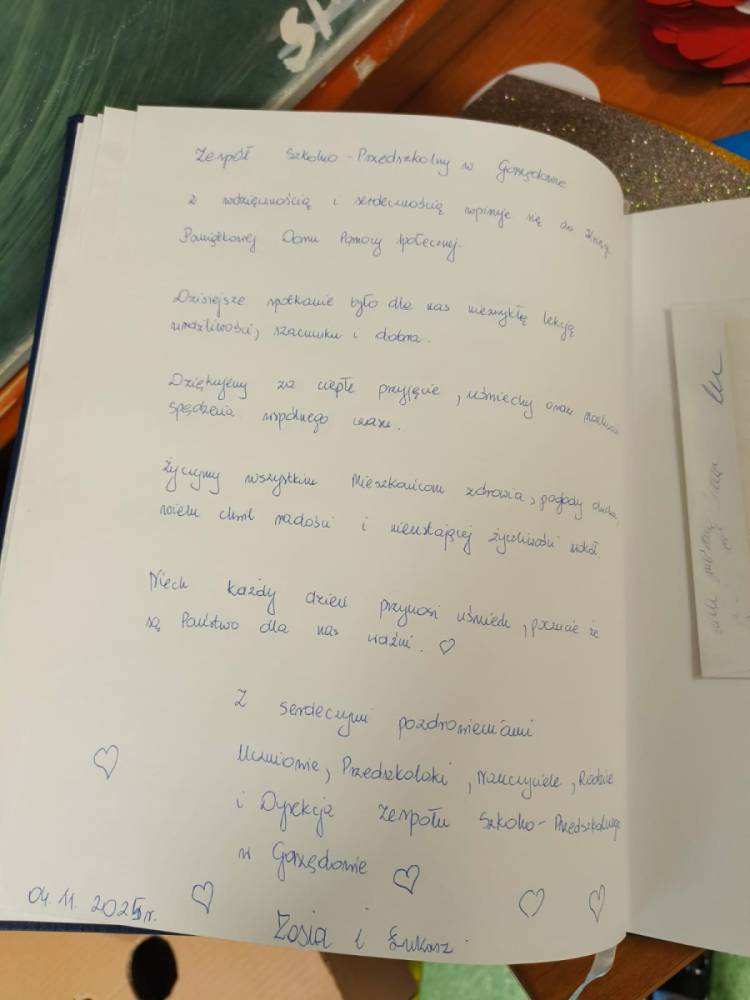 Zespół Szkolno-Przedszkolny w Gorzędowie
z wdzięcznością i serdecznością wpisuje się do Księgi
Pamiątkowej Domu Pomocy Społecznej.
Dzisiejsze spotkanie było dla nas niezwykłą lekcją
wrażliwości, szacunku i dobra.
Dziękujemy za ciepłe przyjęcie, uśmiechy oraz
spędzenia wspólnego czasu.
Życzymy wszystkim Mieszkańcom zdrowia, pogody ducha,
wielu chwil radości i nieustającej życzliwości wokół.
Niech każdy dzień przynosi uśmiech, poczucie że
są Państwo dla nas ważni. ♡
Z serdecznymi pozdrowieniami
Uczniowie, Przedszkolaki, Nauczyciele, Rodzice
i Dyrekcja Zespołu Szkolno-Przedszkolnego
w Gorzędowie ♡
04.11.2025r.
Zosia i Łukasz